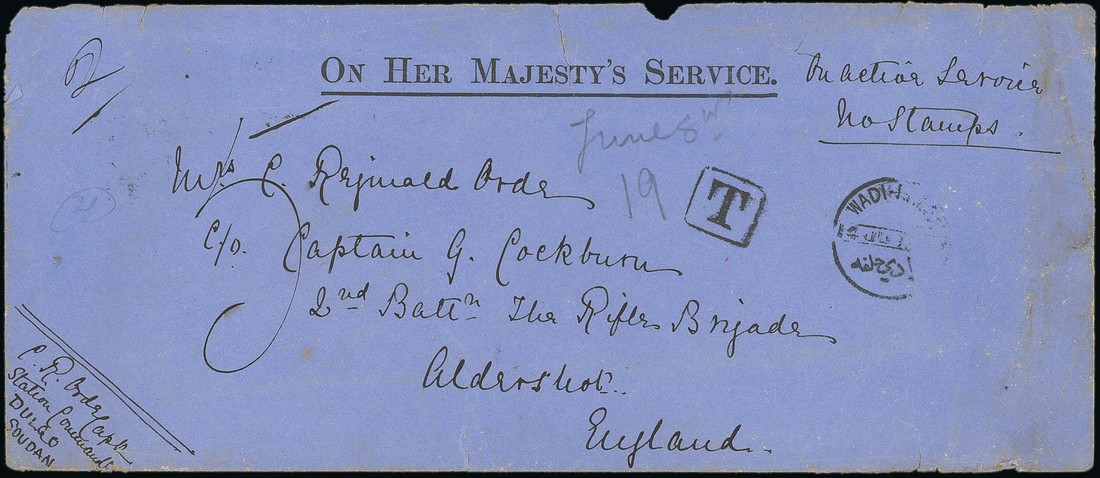 ON HER MAJESTY'S SERVICE.
On active Service
No Stamps.
June 8th
19
T
Mrs C. Reginald Orde
c/o. Captain G. Cockburn
2nd Battn The Rifle Brigade
Aldershot.
England.
WADI-H
C. R. Orde Captn
Station Commandt
DULGO
SOUDAN